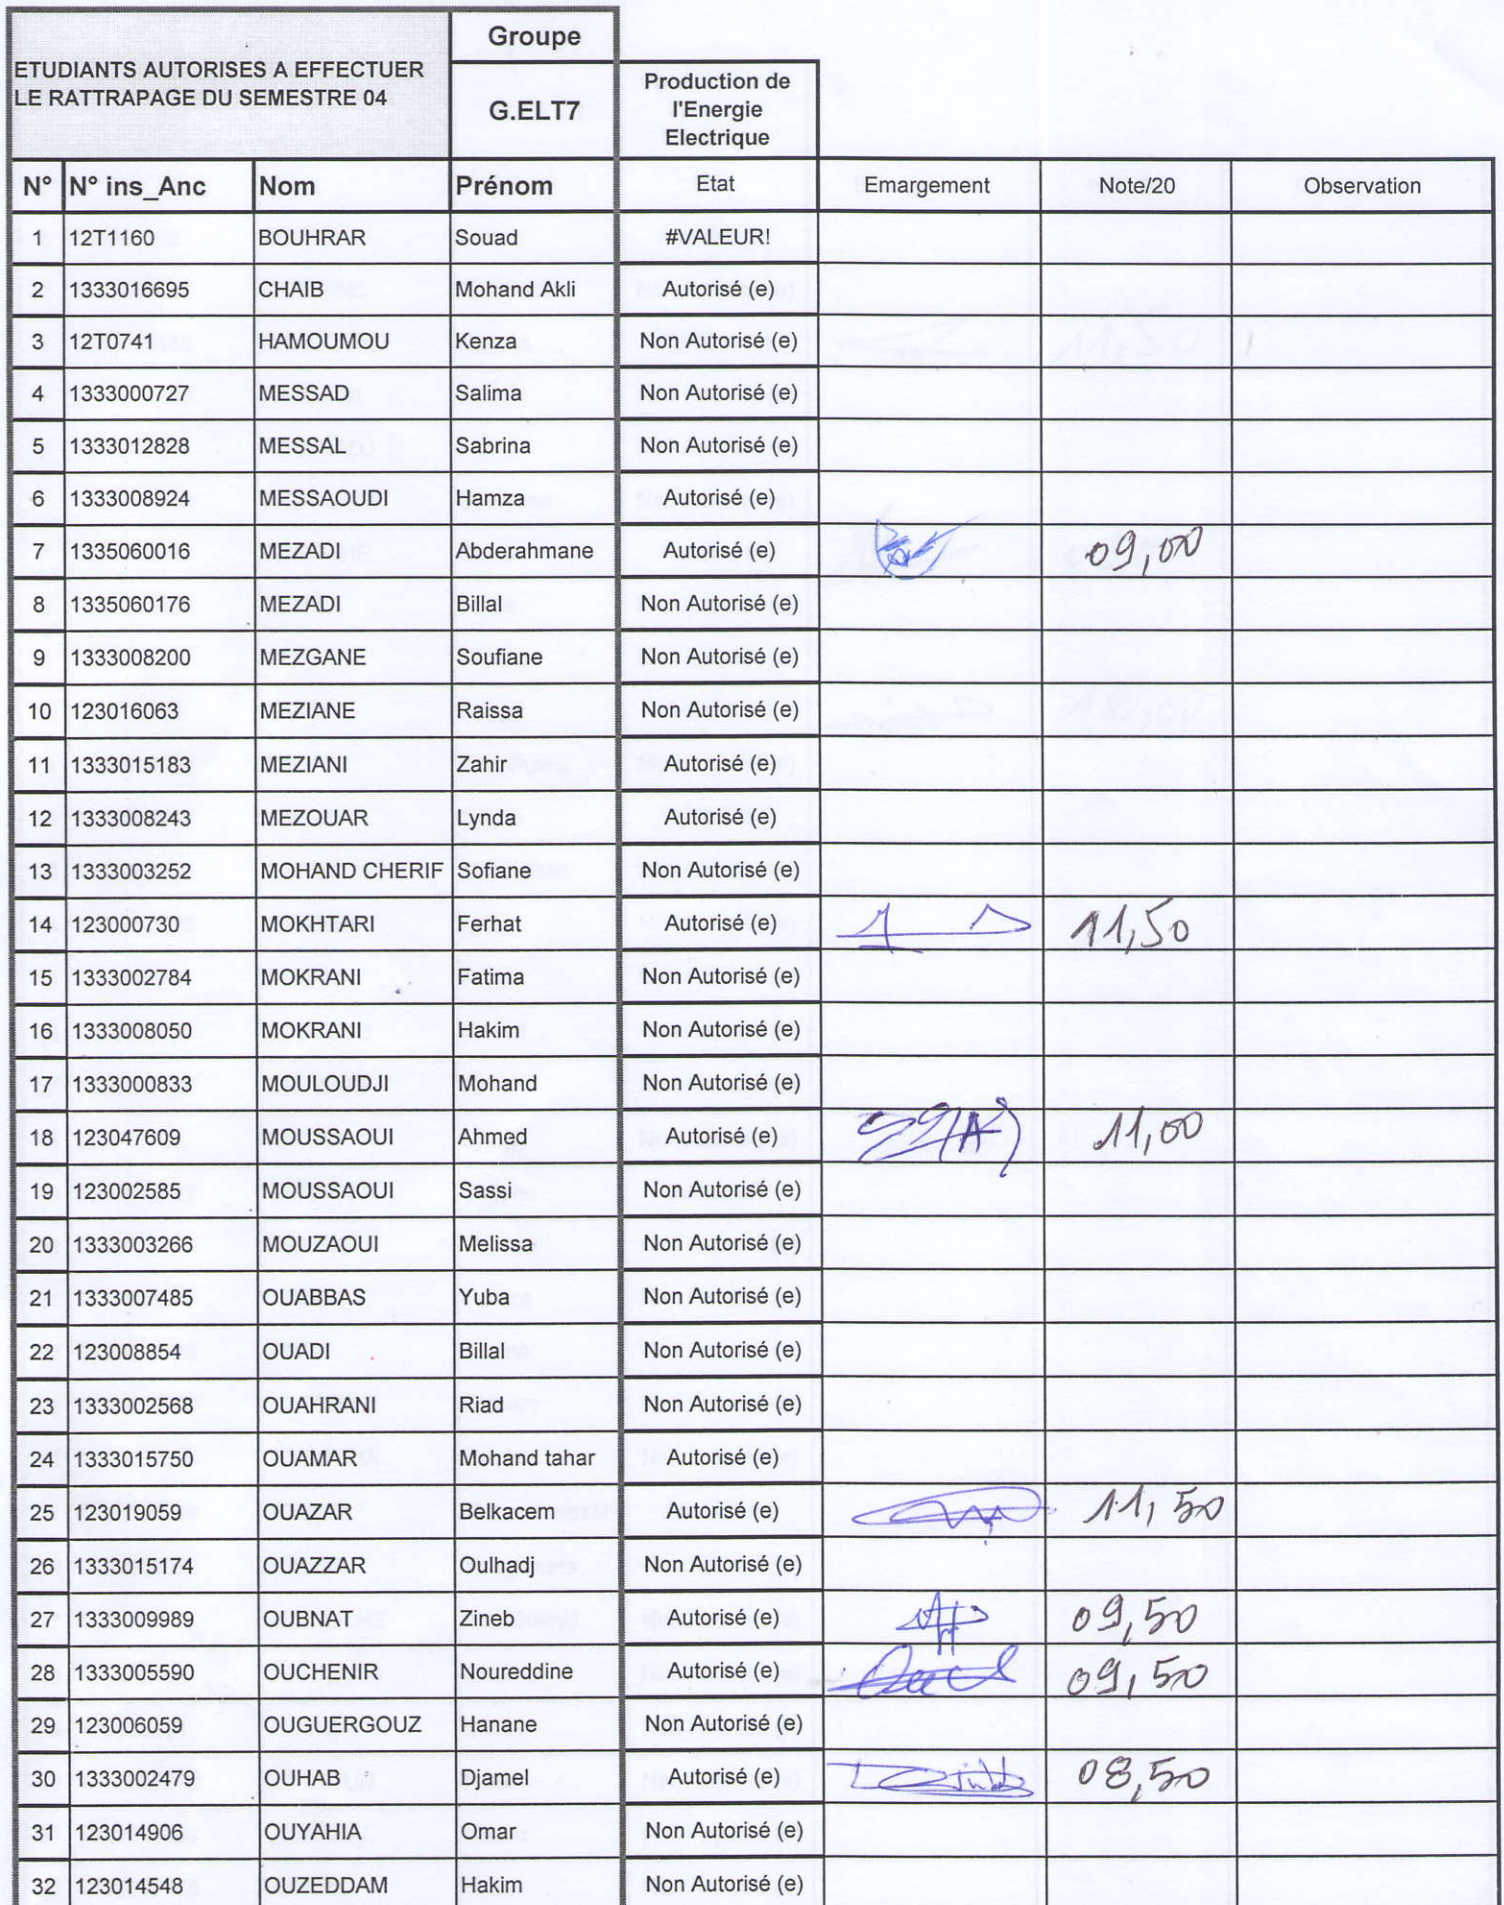 ETUDIANTS AUTORISES A EFFECTUER
LE RATTRAPAGE DU SEMESTRE 04
Groupe
G.ELT7
Production de
l'Energie
Electrique
N° N° ins_Anc Nom Prénom Etat Emargement Note/20 Observation
1 12T1160 BOUHRAR Souad #VALEUR!
2 1333016695 CHAIB Mohand Akli Autorisé (e)
3 12T0741 HAMOUMOU Kenza Non Autorisé (e)
4 1333000727 MESSAD Salima Non Autorisé (e)
5 1333012828 MESSAL Sabrina Non Autorisé (e)
6 1333008924 MESSAOUDI Hamza Autorisé (e)
7 1335060016 MEZADI Abderahmane Autorisé (e) 09,00
8 1335060176 MEZADI Billal Non Autorisé (e)
9 1333008200 MEZGANE Soufiane Non Autorisé (e)
10 123016063 MEZIANE Raissa Non Autorisé (e)
11 1333015183 MEZIANI Zahir Autorisé (e)
12 1333008243 MEZOUAR Lynda Autorisé (e)
13 1333003252 MOHAND CHERIF Sofiane Non Autorisé (e)
14 123000730 MOKHTARI Ferhat Autorisé (e) 11,50
15 1333002784 MOKRANI Fatima Non Autorisé (e)
16 1333008050 MOKRANI Hakim Non Autorisé (e)
17 1333000833 MOULOUDJI Mohand Non Autorisé (e)
18 123047609 MOUSSAOUI Ahmed Autorisé (e) 11,00
19 123002585 MOUSSAOUI Sassi Non Autorisé (e)
20 1333003266 MOUZAOUI Melissa Non Autorisé (e)
21 1333007485 OUABBAS Yuba Non Autorisé (e)
22 123008854 OUADI Billal Non Autorisé (e)
23 1333002568 OUAHRANI Riad Non Autorisé (e)
24 1333015750 OUAMAR Mohand tahar Autorisé (e)
25 123019059 OUAZAR Belkacem Autorisé (e) 11,50
26 1333015174 OUAZZAR Oulhadj Non Autorisé (e)
27 1333009989 OUBNAT Zineb Autorisé (e) 09,50
28 1333005590 OUCHENIR Noureddine Autorisé (e) 09,50
29 123006059 OUGUERGOUZ Hanane Non Autorisé (e)
30 1333002479 OUHAB Djamel Autorisé (e) 08,50
31 123014906 OUYAHIA Omar Non Autorisé (e)
32 123014548 OUZEDDAM Hakim Non Autorisé (e)